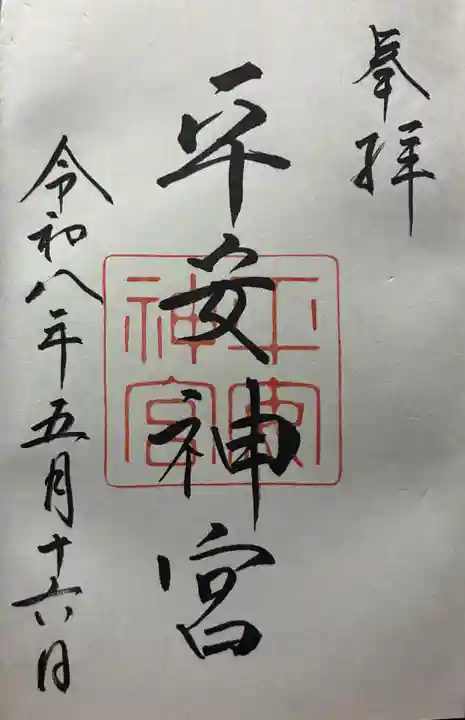 奉拝
平安神宮
平安神宮
令和八年五月十六日